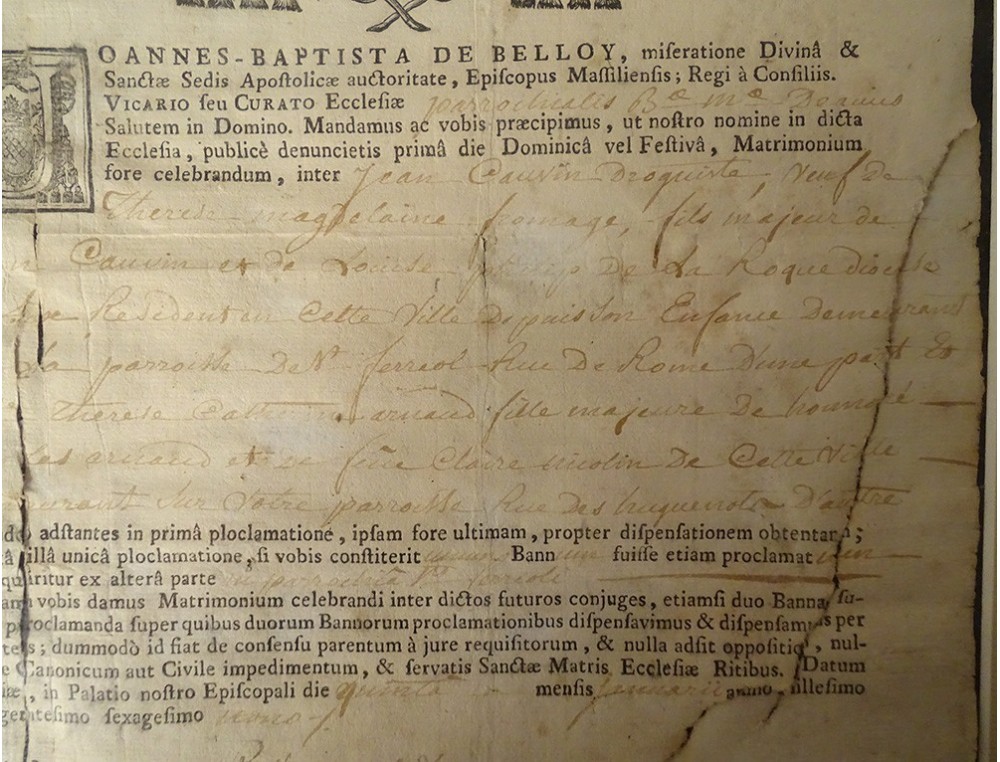 OANNES-BAPTISTA DE BELLOY, miseratione Divinâ &
Sanctæ Sedis Apostolicæ auctoritate, Episcopus Massiliensis; Regi à Consiliis.
VICARIO seu CURATO Ecclesiæ parrochialis Bæ Mæ
Salutem in Domino. Mandamus ac vobis præcipimus, ut nostro nomine in dicta
Ecclesia, publicè denuncietis primâ die Dominicâ vel Festivâ, Matrimonium
fore celebrandum, inter Jean Cauvin Droguiste, veuf de
Therese magdelaine fromage, fils majeur de
Cauvin et de Louise De La Roque diocese
Resident en Cette Ville Depuis son Enfance Demeurant
La parroisse De St ferreol Rue De Rome D'une part Et
Therese Catherine arnaud fille majeure De honnoré
arnaud et de feüe Claire nicolin De Cette Ville
Sur Votre parroisse Rue Des huguenots D'autre
adstantes in primâ ploclamatione, ipsam fore ultimam, propter dispensationem obtentam;
illâ unicâ ploclamatione, si vobis constiterit unum Bannum fuisse etiam proclamatum
quiritur ex alterâ parte in parrochia Sti ferreoli
vobis damus Matrimonium celebrandi inter dictos futuros conjuges, etiamsi duo Banna su-
proclamanda super quibus duorum Bannorum proclamationibus dispensavimus & dispensamus per
tes; dummodò id fiat de consensu parentum à jure requisitorum, & nulla adsit oppositio, nul-
e Canonicum aut Civile impedimentum, & servatis Sanctæ Matris Ecclesiæ Ritibus. Datum
iæ, in Palatio nostro Episcopali die quinta mensis Januarii anno, illesimo
gentesimo sexagesimo